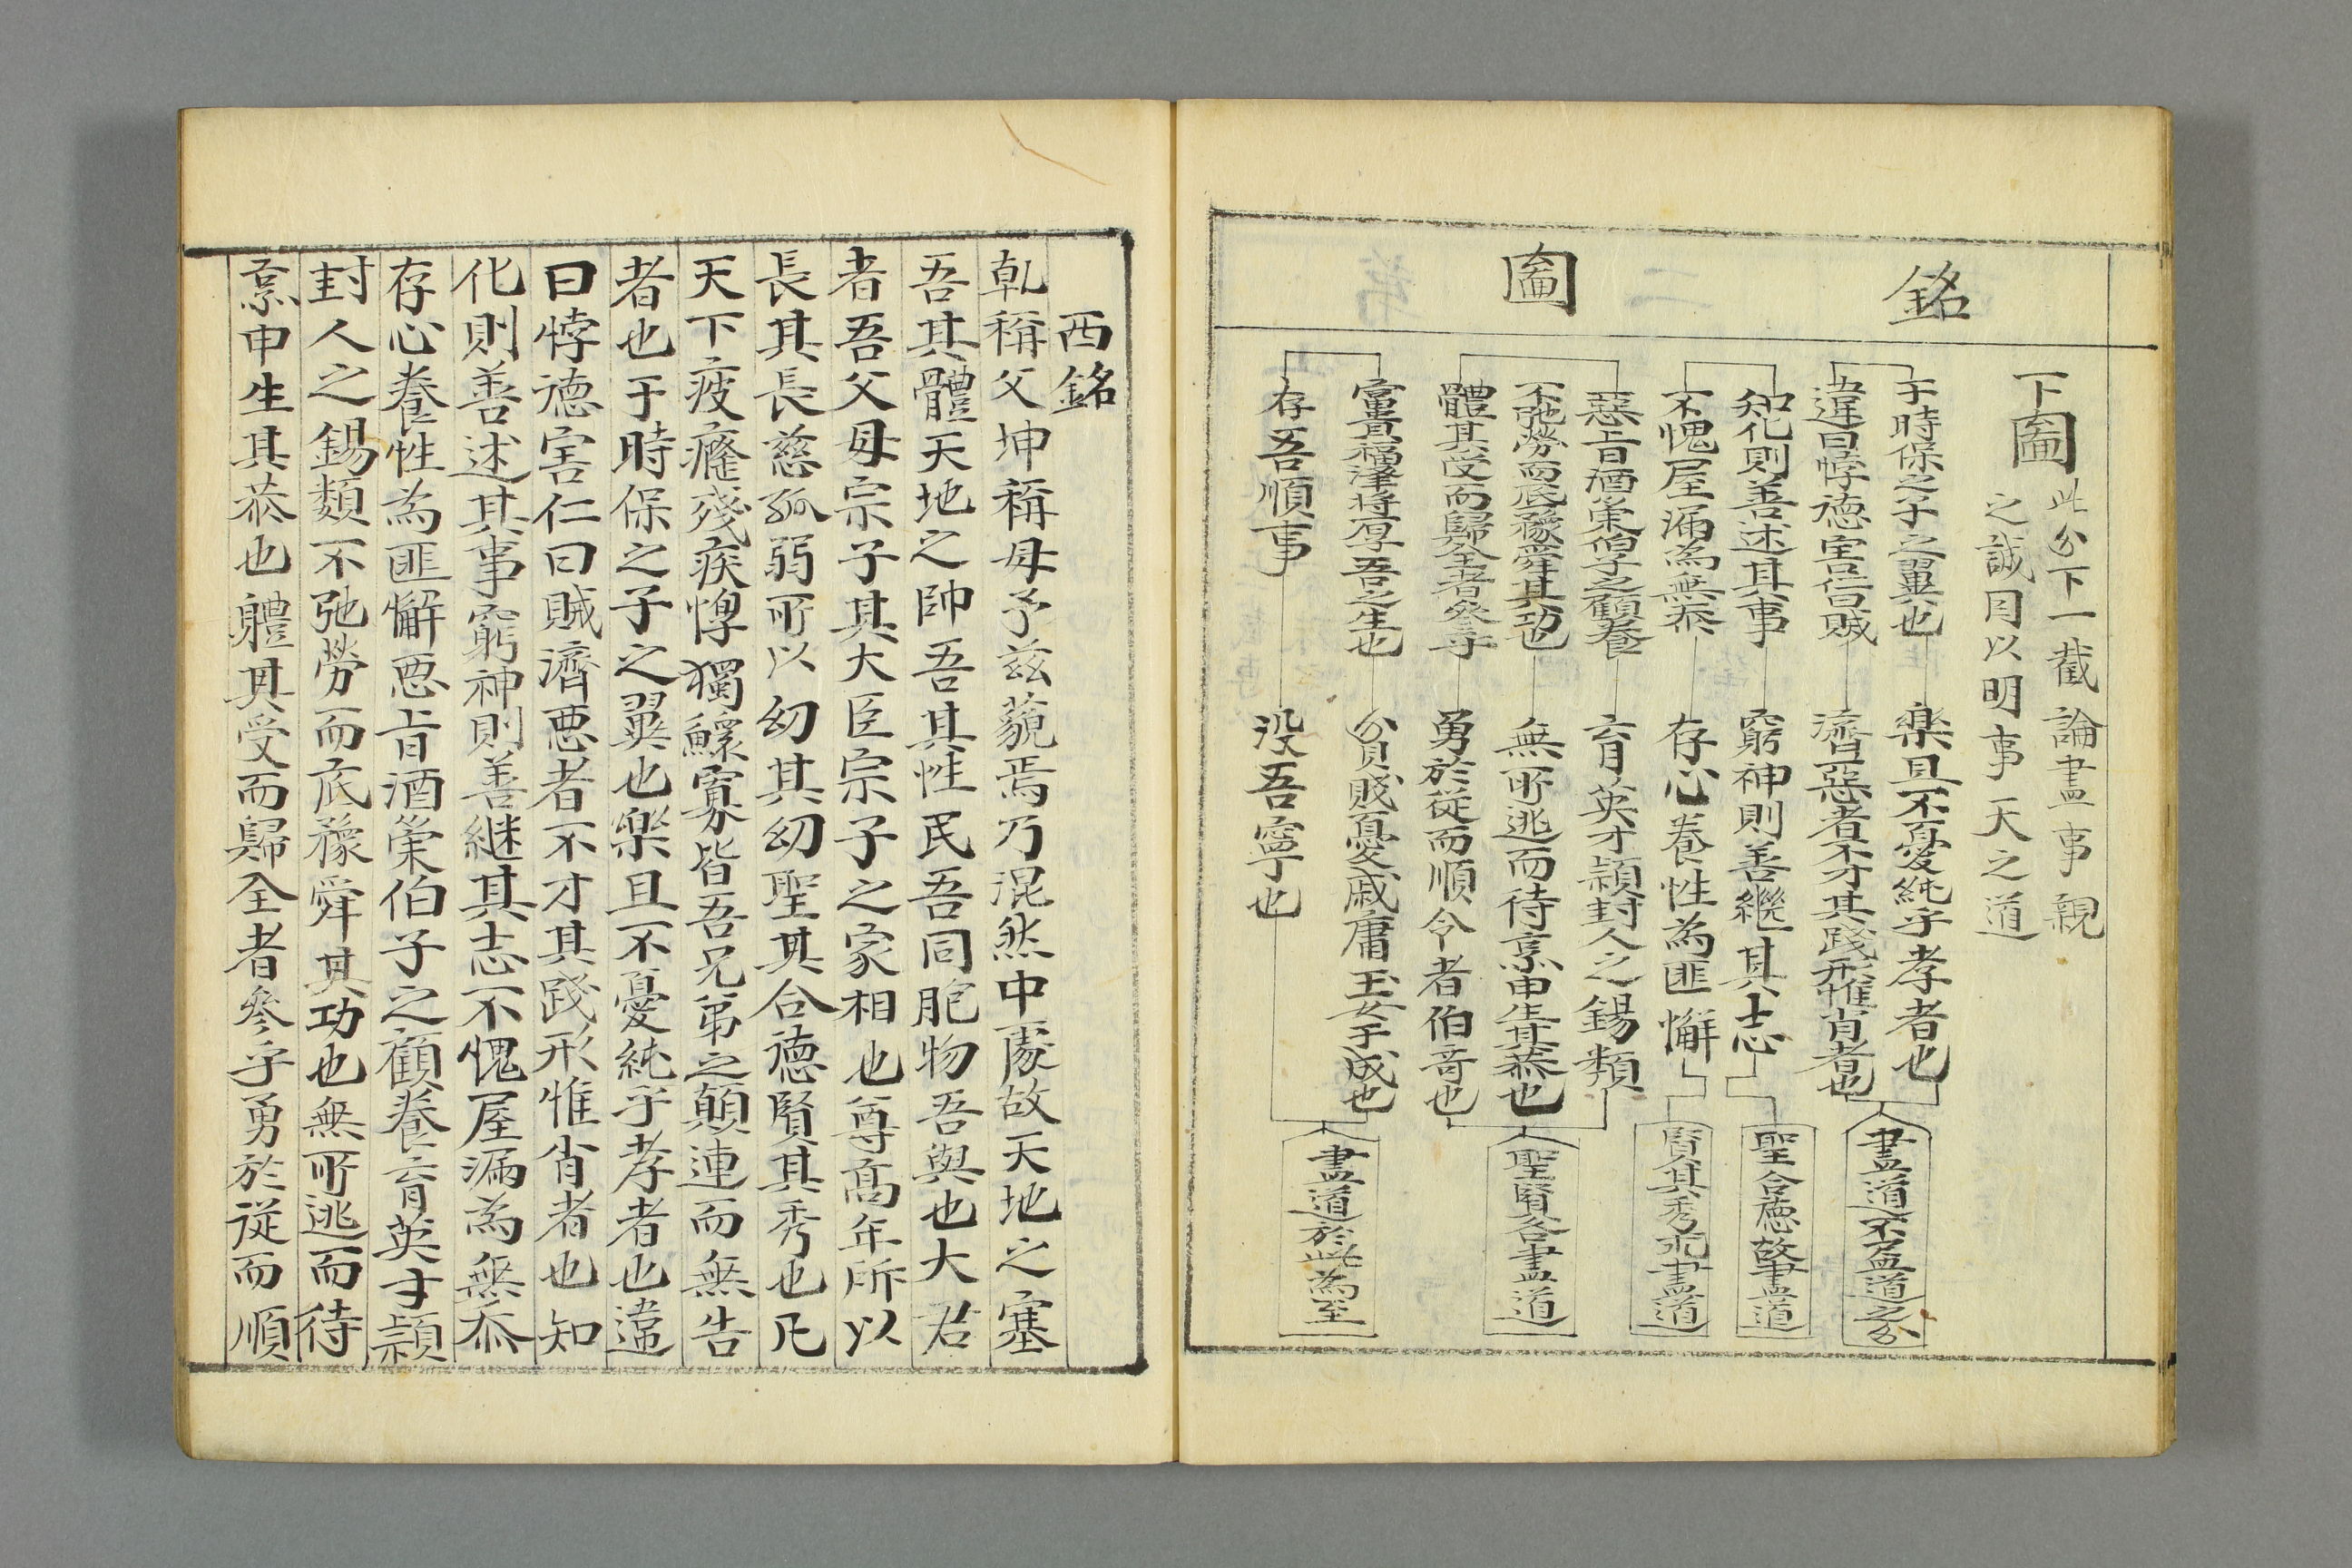 銘
圖
下圖
此分下一截論盡事親
之誠因以明事天之道
于時保之子之翼也
樂且不憂純乎孝者也
違曰悖德害仁曰賊
濟惡者不才其踐形惟肖者也
盡道不盡道之分
知化則善述其事
窮神則善繼其志
聖合德故盡道
不愧屋漏為無忝
存心養性為匪懈
賢其秀求盡道
惡旨酒崇伯子之顧養
育英才穎封人之錫類
不弛勞而底豫舜其功也
無所逃而待烹申生其恭也
體其受而歸全者參乎
勇於從而順令者伯奇也
聖賢各盡道
富貴福澤將厚吾之生也
貧賤憂戚庸玉女于成也
存吾順事
沒吾寧也
盡道於此為至
西銘
乹稱父坤稱母予茲藐焉乃混然中處故天地之塞
吾其體天地之帥吾其性民吾同胞物吾與也大君
者吾父母宗子其大臣宗子之家相也尊高年所以
長其長慈孤弱所以幼其幼聖其合德賢其秀也凡
天下疲癃殘疾惸獨鰥寡皆吾兄弟之顛連而無告
者也于時保之子之翼也樂且不憂純乎孝者也違
曰悖德害仁曰賊濟惡者不才其踐形惟肖者也知
化則善述其事窮神則善継其志不愧屋漏為無忝
存心養性為匪懈惡旨酒崇伯子之顧養育英才穎
封人之錫類不弛勞而底豫舜其功也無所逃而待
烹申生其恭也體其受而歸全者參乎勇於從而順